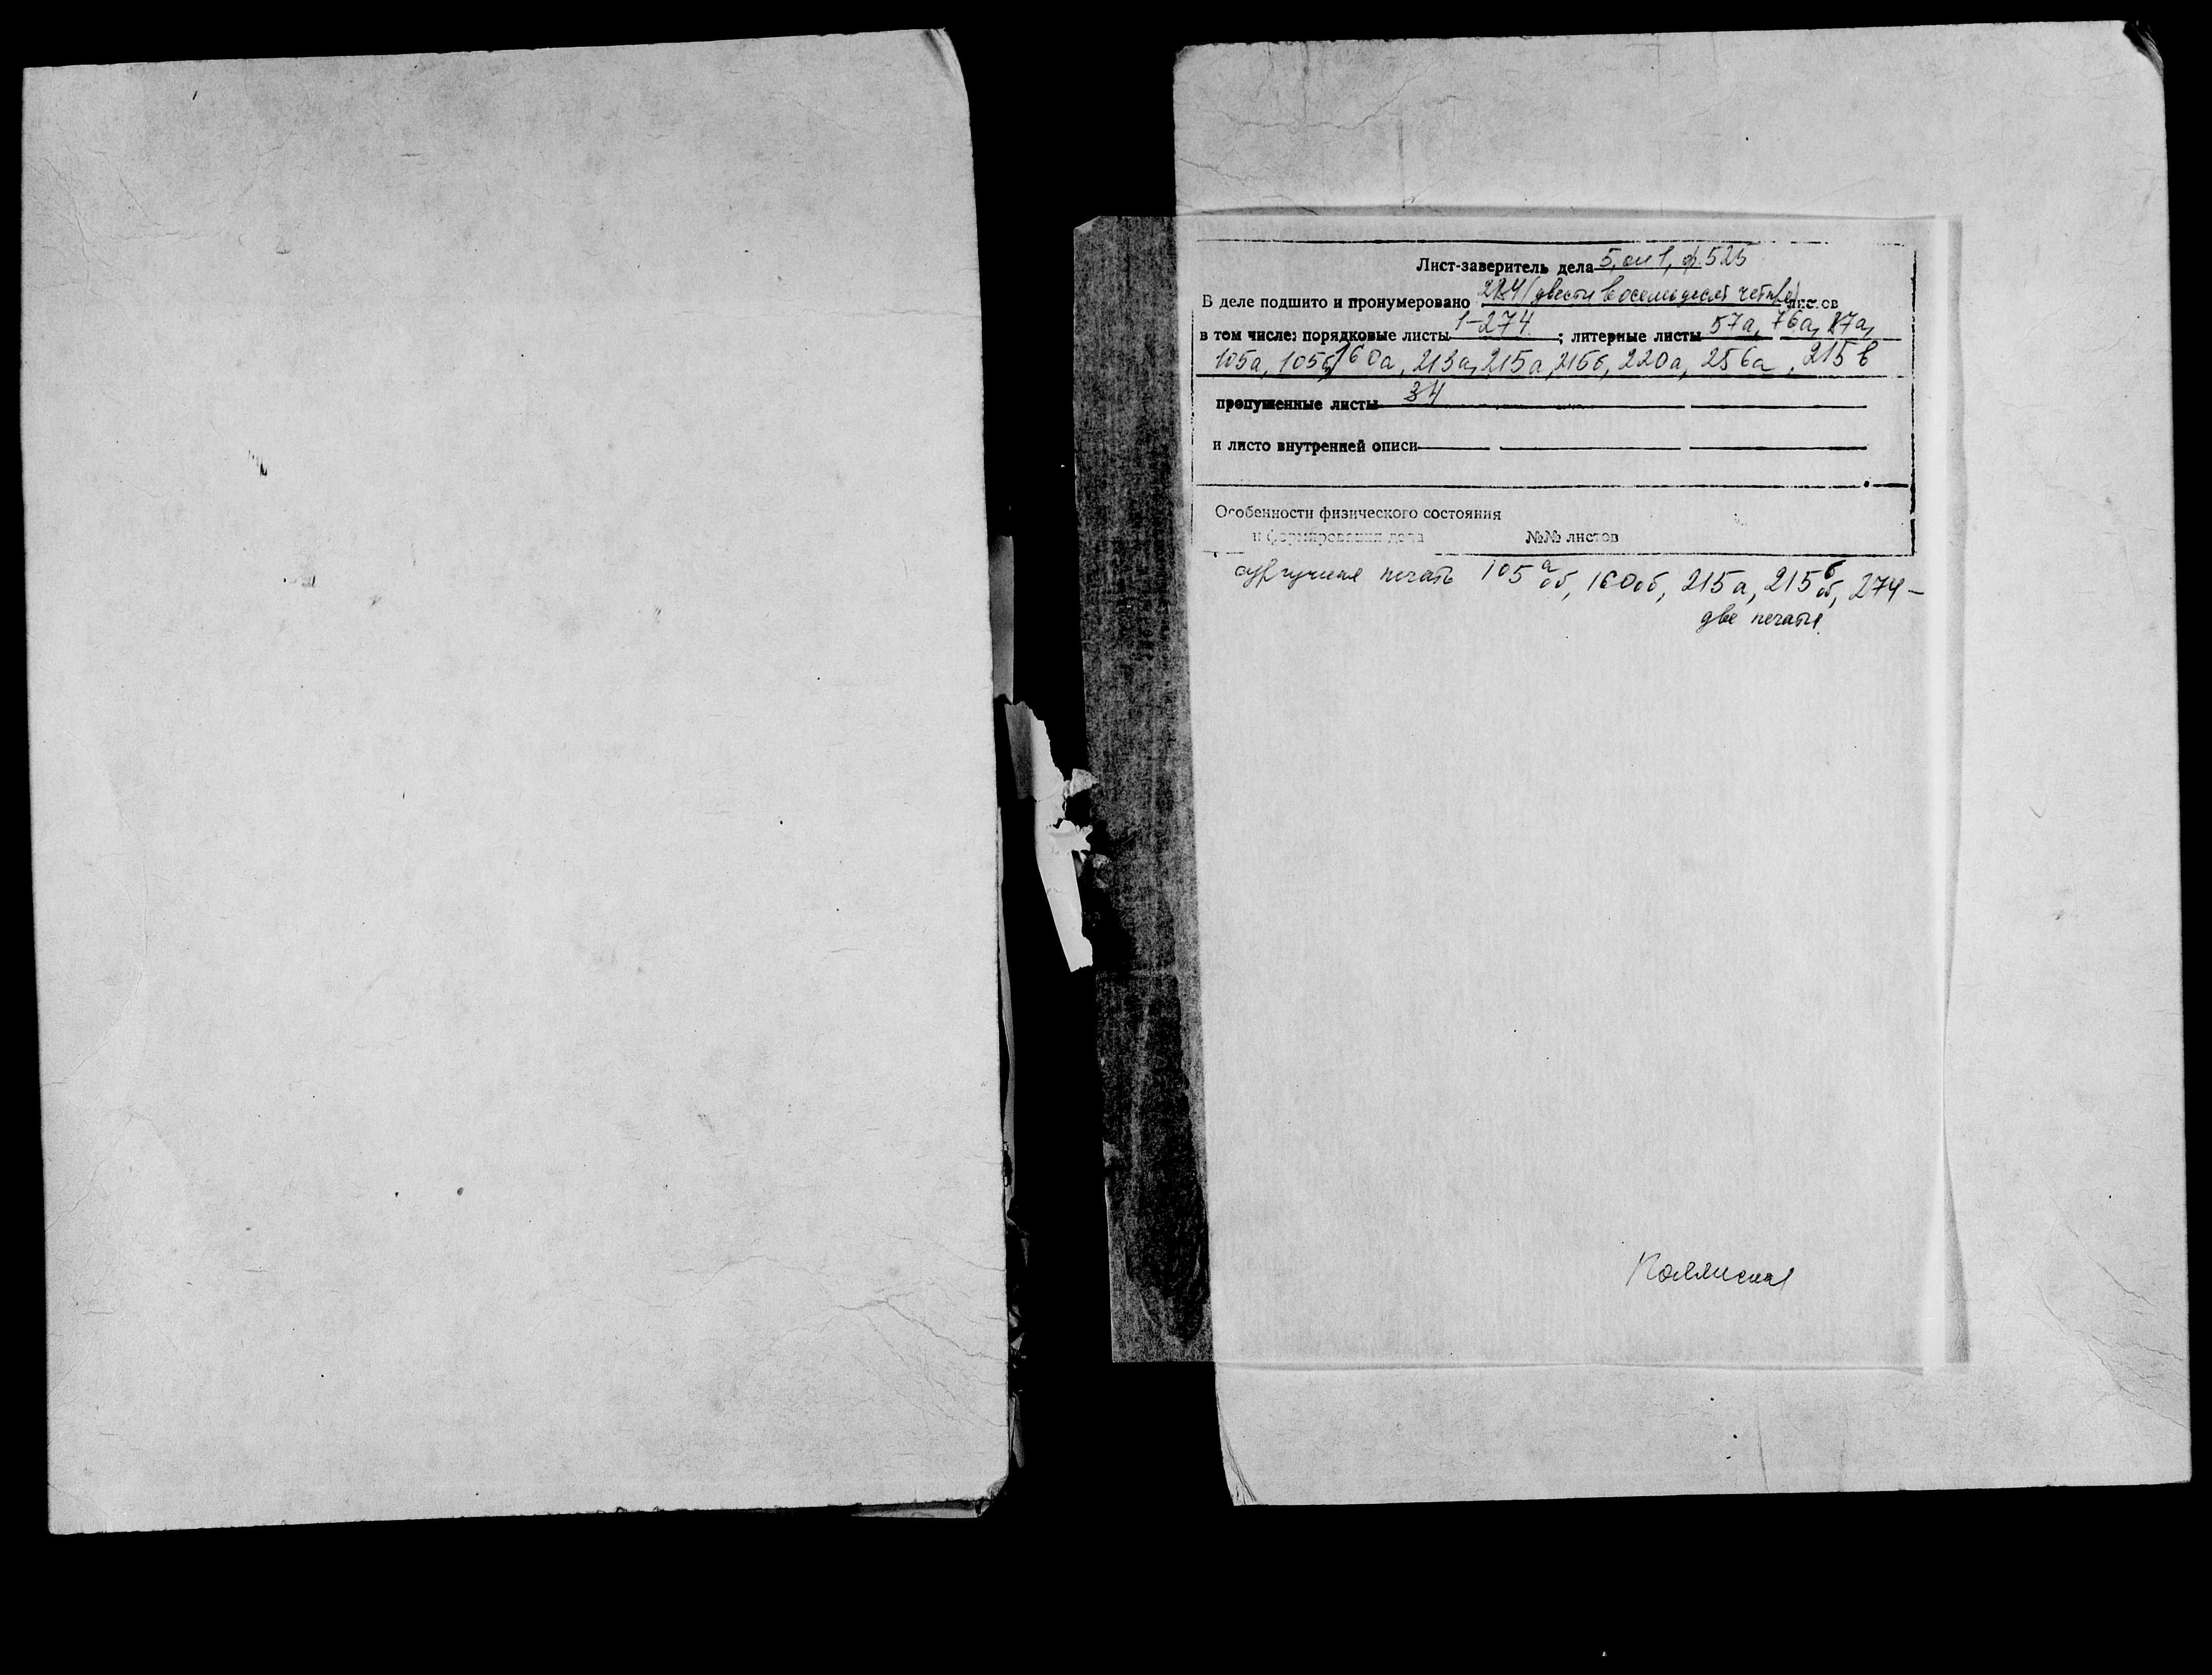 Лист-заверитель дела 5, оп 1, ф. 525
В деле подшито и пронумеровано 284 (двести восемьдесят четыре) листов
в том числе: порядковые листы 1-274 ; литерные листы 57а, 76а, 87а,
105а, 105б, 160а, 213а, 215а, 215б, 220а, 256а, 215в
пропущенные листы 34
и листо внутренней описи
Особенности физического состояния
и формирования дела №№ листов
сургучная печать 105а об, 160об, 215а, 215б об, 274 -
две печати.